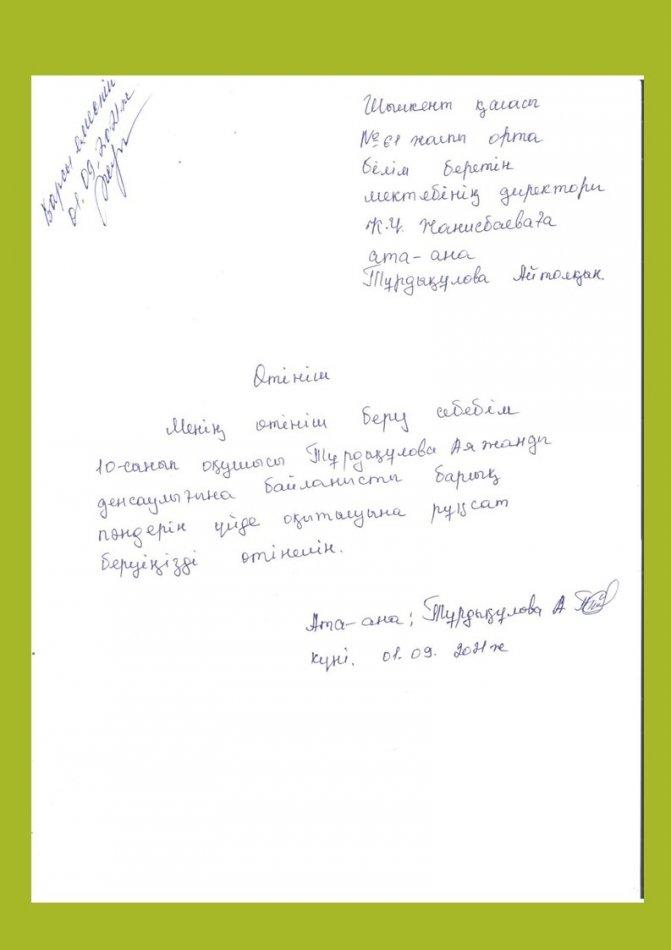 Қарсы емеспін
01.09.2021ж
Шымкент қаласы
№ 61 жалпы орта
білім беретін
мектебінің директоры
Ж.Ч. Жанисбаеваға
ата-ана
Тұрдықұлова Айтолқын.
Өтініш
Менің өтініш беру себебім
10-сынып оқушысы Тұрдықұлова Аяжанды
денсаулығына байланысты барлық
пәндерін үйде оқытылуына рұқсат
беруіңізді өтінемін.
Ата-ана: Тұрдықұлова А
күні. 01.09. 2021ж